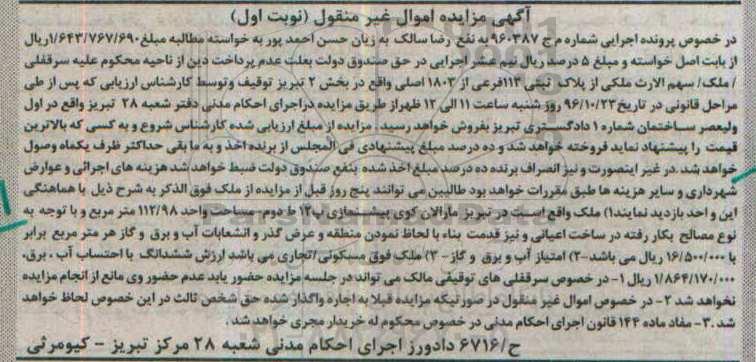 آگهی مزایده اموال غیر منقول (نوبت اول)
در خصوص پرونده اجرایی شماره م ح ۹۶۰۳۸۷ به نفع رضا سالک به زیان حسن احمد پور به خواسته مطالبه مبلغ ۱/۶۴۳/۷۶۷/۶۹۰ ریال
از بابت اصل خواسته و مبلغ ۵ درصد ریال نیم عشر اجرایی در حق صندوق دولت بعلت عدم پرداخت دین از ناحیه محکوم علیه سرقفلی
/ ملک/ سهم الارث ملکی از پلاک ثبتی ۱۱۳ فرعی از ۱۸۰۳ اصلی واقع در بخش ۲ تبریز توقیف وتوسط کارشناس ارزیابی که پس از طی
مراحل قانونی در تاریخ ۹۶/۱۰/۲۳ روز شنبه ساعت ۱۱ الی ۱۲ ظهر از طریق مزایده دراجرای احکام مدنی دفتر شعبه ۲۸ تبریز واقع در اول
ولیعصر ساختمان شماره ۱ دادگستری تبریز بفروش خواهد رسید . مزایده از مبلغ ارزیابی شده کارشناس شروع و به کسی که بالاترین
قیمت را پیشنهاد نماید فروخته خواهد شد و ده درصد مبلغ پیشنهادی فی المجلس از برنده اخذ و به ما بقی حداکثر ظرف یکماه وصول
خواهد شد .در غیر اینصورت و نیز انصراف برنده ده درصد مبلغ اخذ شده بنفع صندوق دولت ضبط خواهد شد هزینه های اجرائی و عوارض
شهرداری و سایر هزینه ها طبق مقررات خواهد بود طالبین می توانند پنج روز قبل از مزایده از ملک فوق الذکر به شرح ذیل با هماهنگی
این و احد بازدید نمایند۱) ملک واقع است در تبریز مارالان کوی پیشنمازی پ۱۲ ط دوم . مساحت واحد ۱۱۲/۹۸ متر مربع و با توجه به
نوع مصالح بکار رفته در ساخت اعیانی و نیز قدمت بناء با لحاظ نمودن منطقه و عرض گذر و انشعابات آب و برق و گاز هر متر مربع برابر
با ۱۶/۵۰۰/۰۰۰ ریال می باشد-۲) امتیاز آب و برق و گاز - ۳) ملک فوق مسکونی/تجاری می باشد ارزش ششدانگ با احتساب آب ، برق،
۱/۸۶۴/۱۷۰/۰۰۰ ریال ۱- در خصوص سرقفلی های توقیفی مالک می تواند در جلسه مزایده حضور یابد عدم حضور وی مانع از انجام مزایده
نخواهد شد ۲- در خصوص اموال غیر منقول در صورتیکه مزایده قبلا به اجاره واگذار شده حق شخص ثالث در این خصوص لحاظ خواهد
شد .۳- مفاد ماده ۱۴۴ قانون اجرای احکام مدنی در خصوص محکوم له خریدار مجری خواهد شد .
ح/۶۷۱۶ دادورز اجرای احکام مدنی شعبه ۲۸ مرکز تبریز - کیومرثی